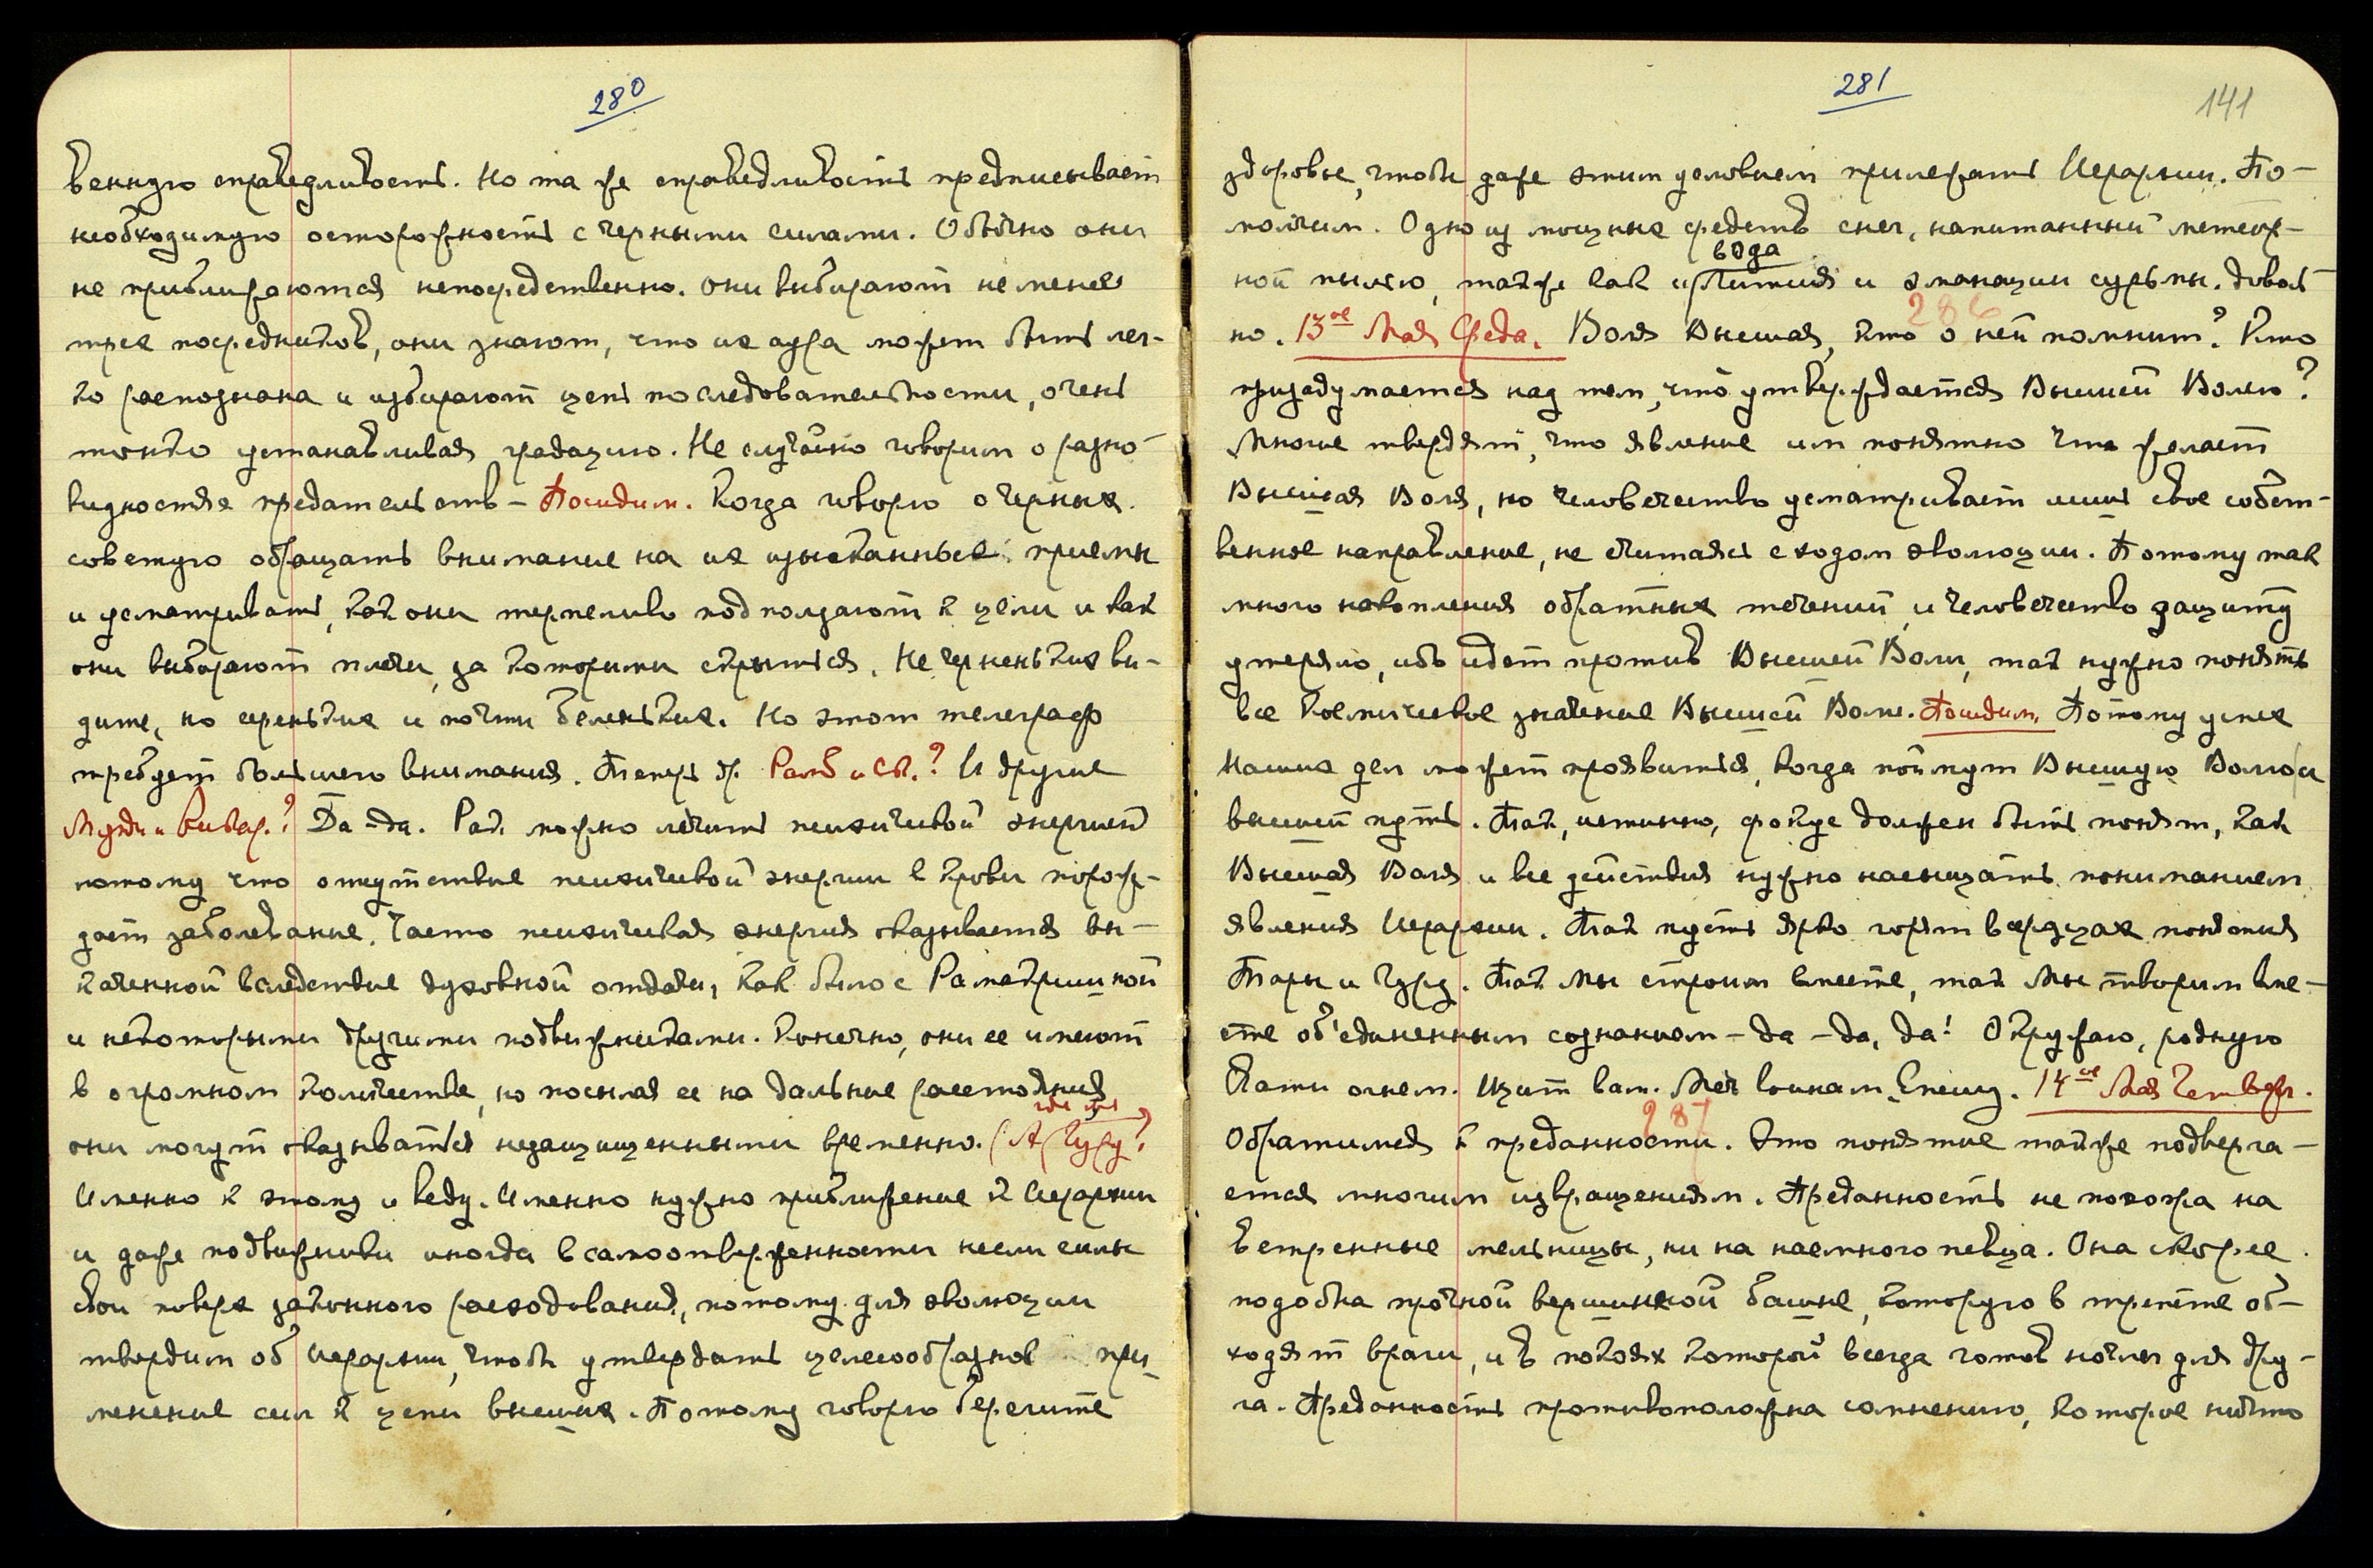 280
венную справедливость. Но та же справедливость предписывает
необходимую осторожность с черными силами. Обычно они
не приближаются непосредственно. Они выбирают не менее
трех посредников, они знают, что их аура может быть лег-
ко распознана и избирают цепь последовательности, очень
тонко устанавливая градацию. Не случайно говорим о разно-
видностях предательств – Посидим. Когда говорю о черных
советую обращать внимание на их изысканные приемы
и усматривать, как они терпеливо подползают к цели и как
они выбирают плечи, за которыми скрыться. Не черненьких ви-
дите, но сереньких и почти беленьких. Но этот телеграф
требует большего внимания. Теперь др. Рамб и Св.? И другие
Да-да. Рак можно лечить психической энергией
потому что отсутствие психической энергии в крови порож-
дает заболевание. Часто психическая энергия оказывается вы-
каченной вследствие духовной отдачи, как было с Рамакришной
и некоторыми другими подвижниками. Конечно, они ее имеют
в огромном количестве, но посылая ее на дальние расстояния
они могут оказываться незащищенными временно. (А Гуру?
Именно к этому и веду. Именно нужно приближение к Иерархии
и даже подвижники иногда в самоотверженности несли силы
свои поверх законного расходования, потому для эволюции
твердим об Иерархии, чтобы утверждать целесообразное при-
менение сил к цепи высших. Потому говорю берегите
281
141
здоровье, чтобы даже этим условием прилежать Иерархии. По-
молчим. Одно из мощных средств снег, напитанный метеор-
вода
ной пылью, также как и Лития и эманации сурьмы. Доволь-
но. 13ое Мая Среда. Воля Высшая, кто о ней помнит? Кто
286
призадумается над тем, что утверждается Высшей Волею?
Многие твердят, что явление им понятно что желает
Высшая Воля, но человечество усматривает лишь свое собст-
венное направление, не считаясь с ходом эволюции. Потому так
много накопления обратных течений, и человечество защиту
утеряло, ибо идет против Высшей Воли, так нужно понять
все космическое значение Высшей Воли. Посидим. Потому успех
Наших дел может проявиться, когда поймут Высшую Волю и
высший путь. Так, истинно, фокус должен быть понят, как
Высшая Воля и все действия нужно насыщать пониманием
явления Иерархии. Так пусть ярко горят в сердцах понятия
Тары и Гуру. Так Мы строим вместе, так Мы творим вме-
сте об'единенным сознанием – да – да, да! Окружаю, родную
Свати огнем. Щит вам. Меч воинам. Спешу. 14ое Мая Четверг.
287
Обратимся к преданности. Это понятие также подверга-
ется многим извращениям. Преданность не похожа на
ветренные мельницы, ни на наемного певца. Она скорее
подобна прочной вершинной башне, которую в трепете об-
ходят враги, и в покоях которой всегда готов ночлег для дру-
га. Преданность противоположна сомнению, которое ничто